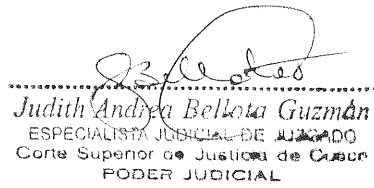 Judith Andrea Bellota Guzmán
ESPECIALISTA JUDICIAL DE JUZGADO
Corte Superior de Justicia de Cusco
PODER JUDICIAL